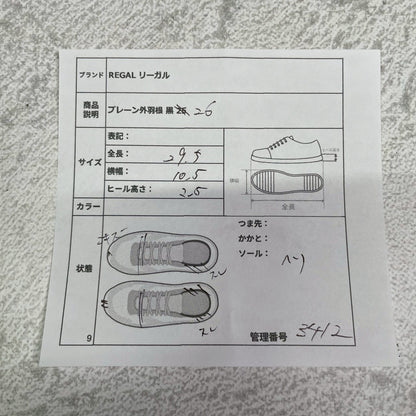 ブランド REGAL リーガル
商品説明 プレーン外羽根 黒 26
サイズ
表記：
全長： 29.5
横幅： 10.5
ヒール高さ： 2.5
ヒール高さ
横幅
全長
カラー
状態
つま先：
かかと：
ソール： ヘリ
スレ
スレ
9
管理番号 3412